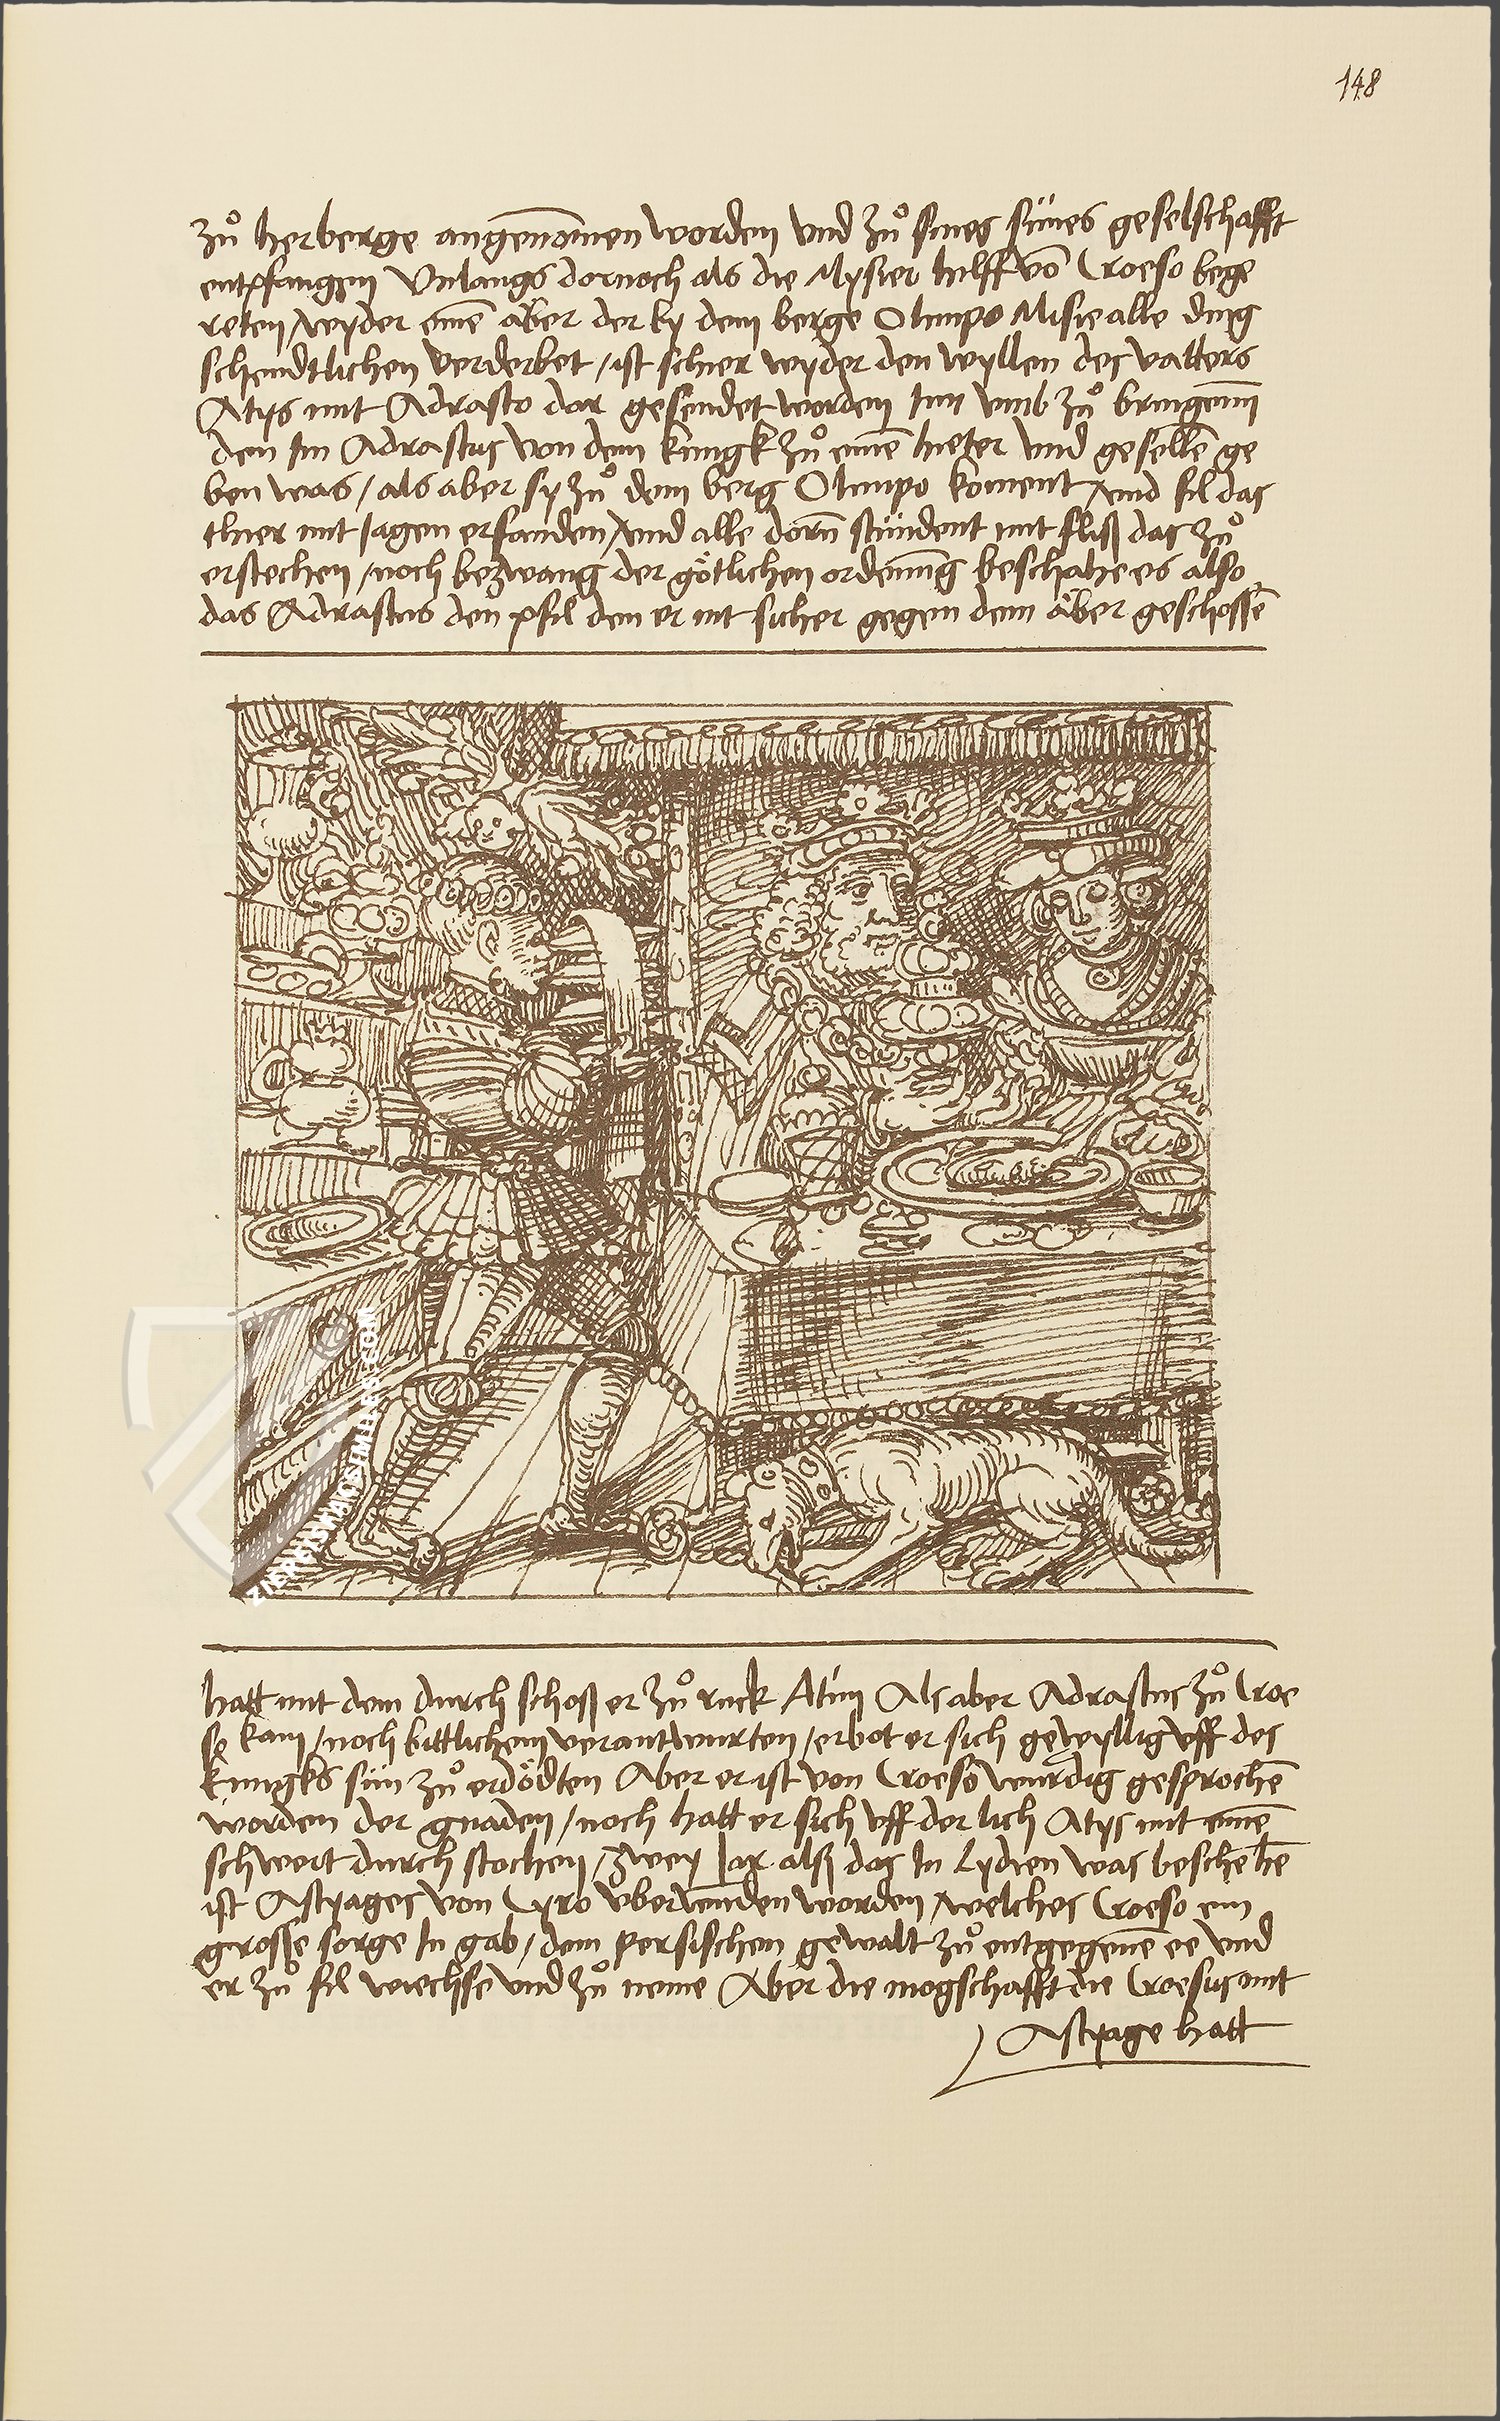 148
zů herberge angenōmen worden vnd zů sines sünes geselschafft
entpfangen Vnlangs dornoch als die Mysier hilff vō Croeso bege
reten / wyder einē äber der by dem berge Olimpo Misie alle ding
schendtlichen verderbet / ist schier wyder den wyllen des vatters
Atys mit Adrasto dar gesendet worden Inn vmb zů bringenn
den Im Adrastus von dem kungk zů einē hieter vnd gesellē ge
ben was / als aber sy zů dem berg Olimpo koment / vnd fil das
thier mit jagen erfanden / vnd alle dorn̄ stündent mit fliß das zů
erstechen / noch bezwang der götlichen ordenūng beschahe es also
das Adrastus den pfil den er nit sicher gegen dem äber geschossē
hatt mit dem durch schoß er zů ruck Atim Als aber Adrastus zů Croe
so kam / noch bittlichem verantwurten / erbot er sich gewyllig vff des
kungks sün zů erdödten Aber er ist von Croeso wurdig gesprochē
worden der gnaden / noch hatt er sich vff der lich Atys mit einē
schwert durch stochen / zwey Jar alß das In Lydien was beschehē
ist Astyages von Cyro vberwunden worden / welches Croeso ein
grosse sorge In gab / dem persischen gewalt zů entgegenē ee vnd
er zů fil wiechse vnd zů neme Aber die mogschafft die Croesus mit
Astyage hatt
ZIEREIS FAKSIMILES.COM